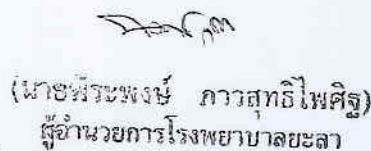 (นายพีระพงษ์ ภาวสุทธิไพศิฐ)
ผู้อำนวยการโรงพยาบาลยะลา